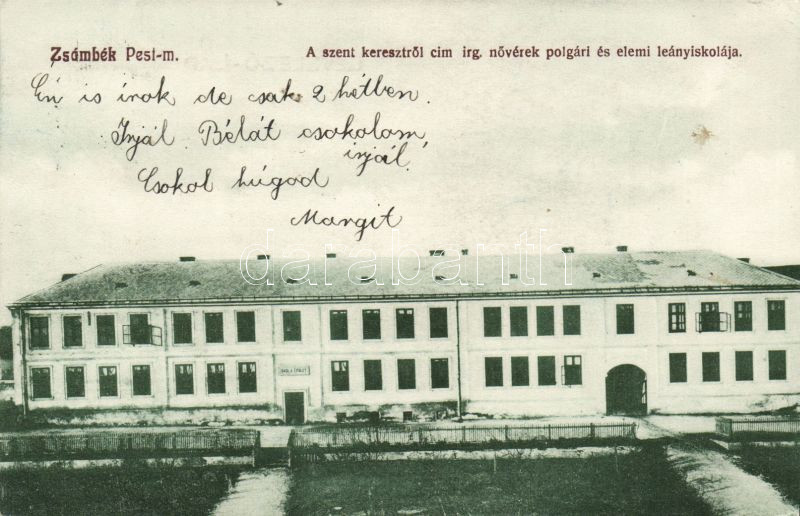 Zsámbék Pest-m. A szent keresztről cim irg. nővérek polgári és elemi leányiskolája.
Én is írok de csak 2 hétben.
Irjál Bélát csokolom,
irjál!
Csokol húgod
Margit
darabanth